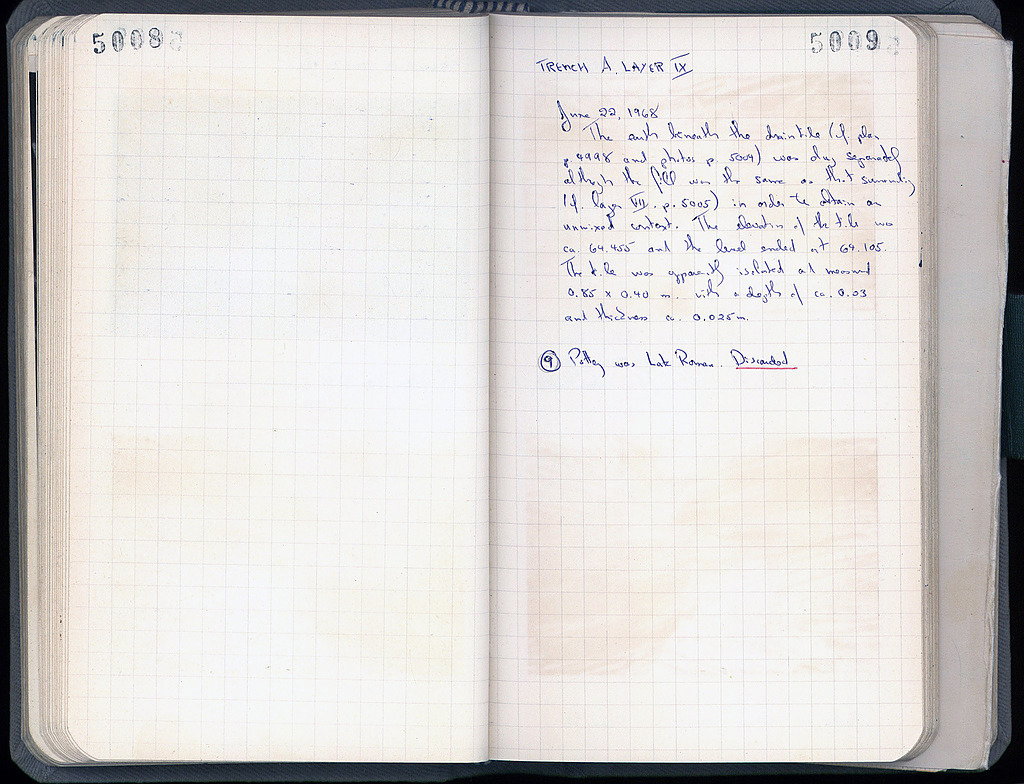 5008
5009
TRENCH A. LAYER IX
June 22, 1968
The earth beneath the drain tile (cf. plan
p. 4998 and photos p. 5004) was dug separately
although the fill was the same as that surrounding
(cf. layer VII. p. 5005) in order to obtain an
unmixed context. The elevation of the tile was
ca. 64.455 and the level ended at 64.105.
The tile was apparently isolated and measured
0.85 x 0.40 m. with a depth of ca. 0.03
and thickness ca. 0.025 m.
9 Pottery was Late Roman. Discarded